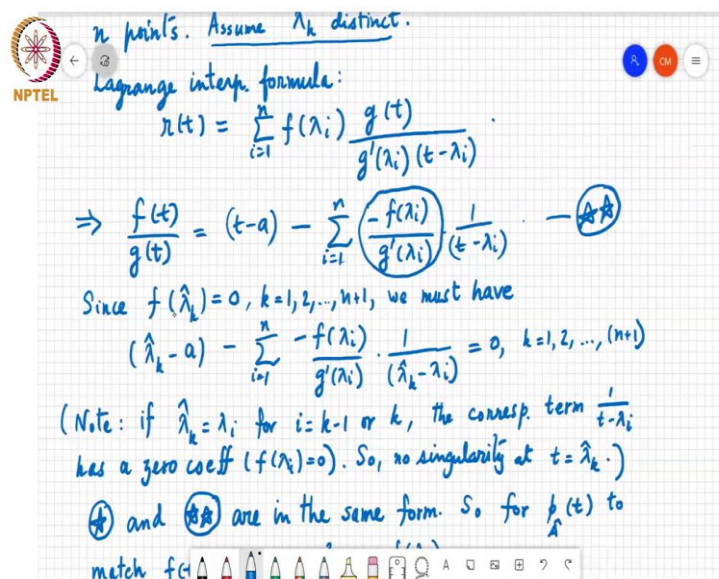 n points. Assume λ_k distinct.
Lagrange interp. formula:
NPTEL
CM
r(t) = Σ_{i=1}^{n} f(λ_i) g(t) / (g'(λ_i) (t-λ_i)) .
⇒ f(t)/g(t) = (t-a) - Σ_{i=1}^{n} (-f(λ_i)/g'(λ_i)) · 1/(t-λ_i) . - ☆☆
Since f(λ̂_k) = 0, k=1,2,...,n+1, we must have
(λ̂_k - a) - Σ_{i=1}^{n} -f(λ_i)/g'(λ_i) · 1/(λ̂_k - λ_i) = 0, k=1,2, ..., (n+1)
(Note: if λ̂_k = λ_i for i=k-1 or k, the corresp. term 1/(t-λ_i)
has a zero coeff (f(λ_i)=0). So, no singularity at t=λ̂_k.)
☆ and ☆☆ are in the same form. So for p_Â(t) to
match